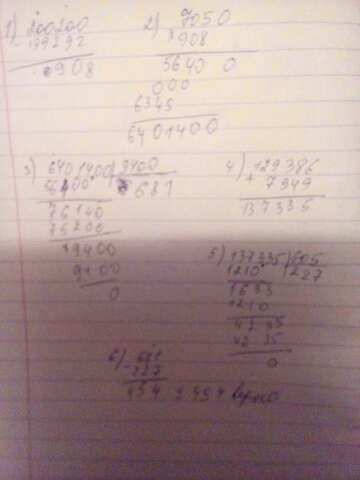 1) 200200
- 199292
908
2) 7050
* 908
5640 0
000
6345
6401400
3) 6401400 9400
56400 681
76140
75200
9400
9400
0
4) 129386
+ 7949
137335
5) 137335 605
1210 227
1633
1210
4235
4235
0
6) - 681
227
454 454 верно